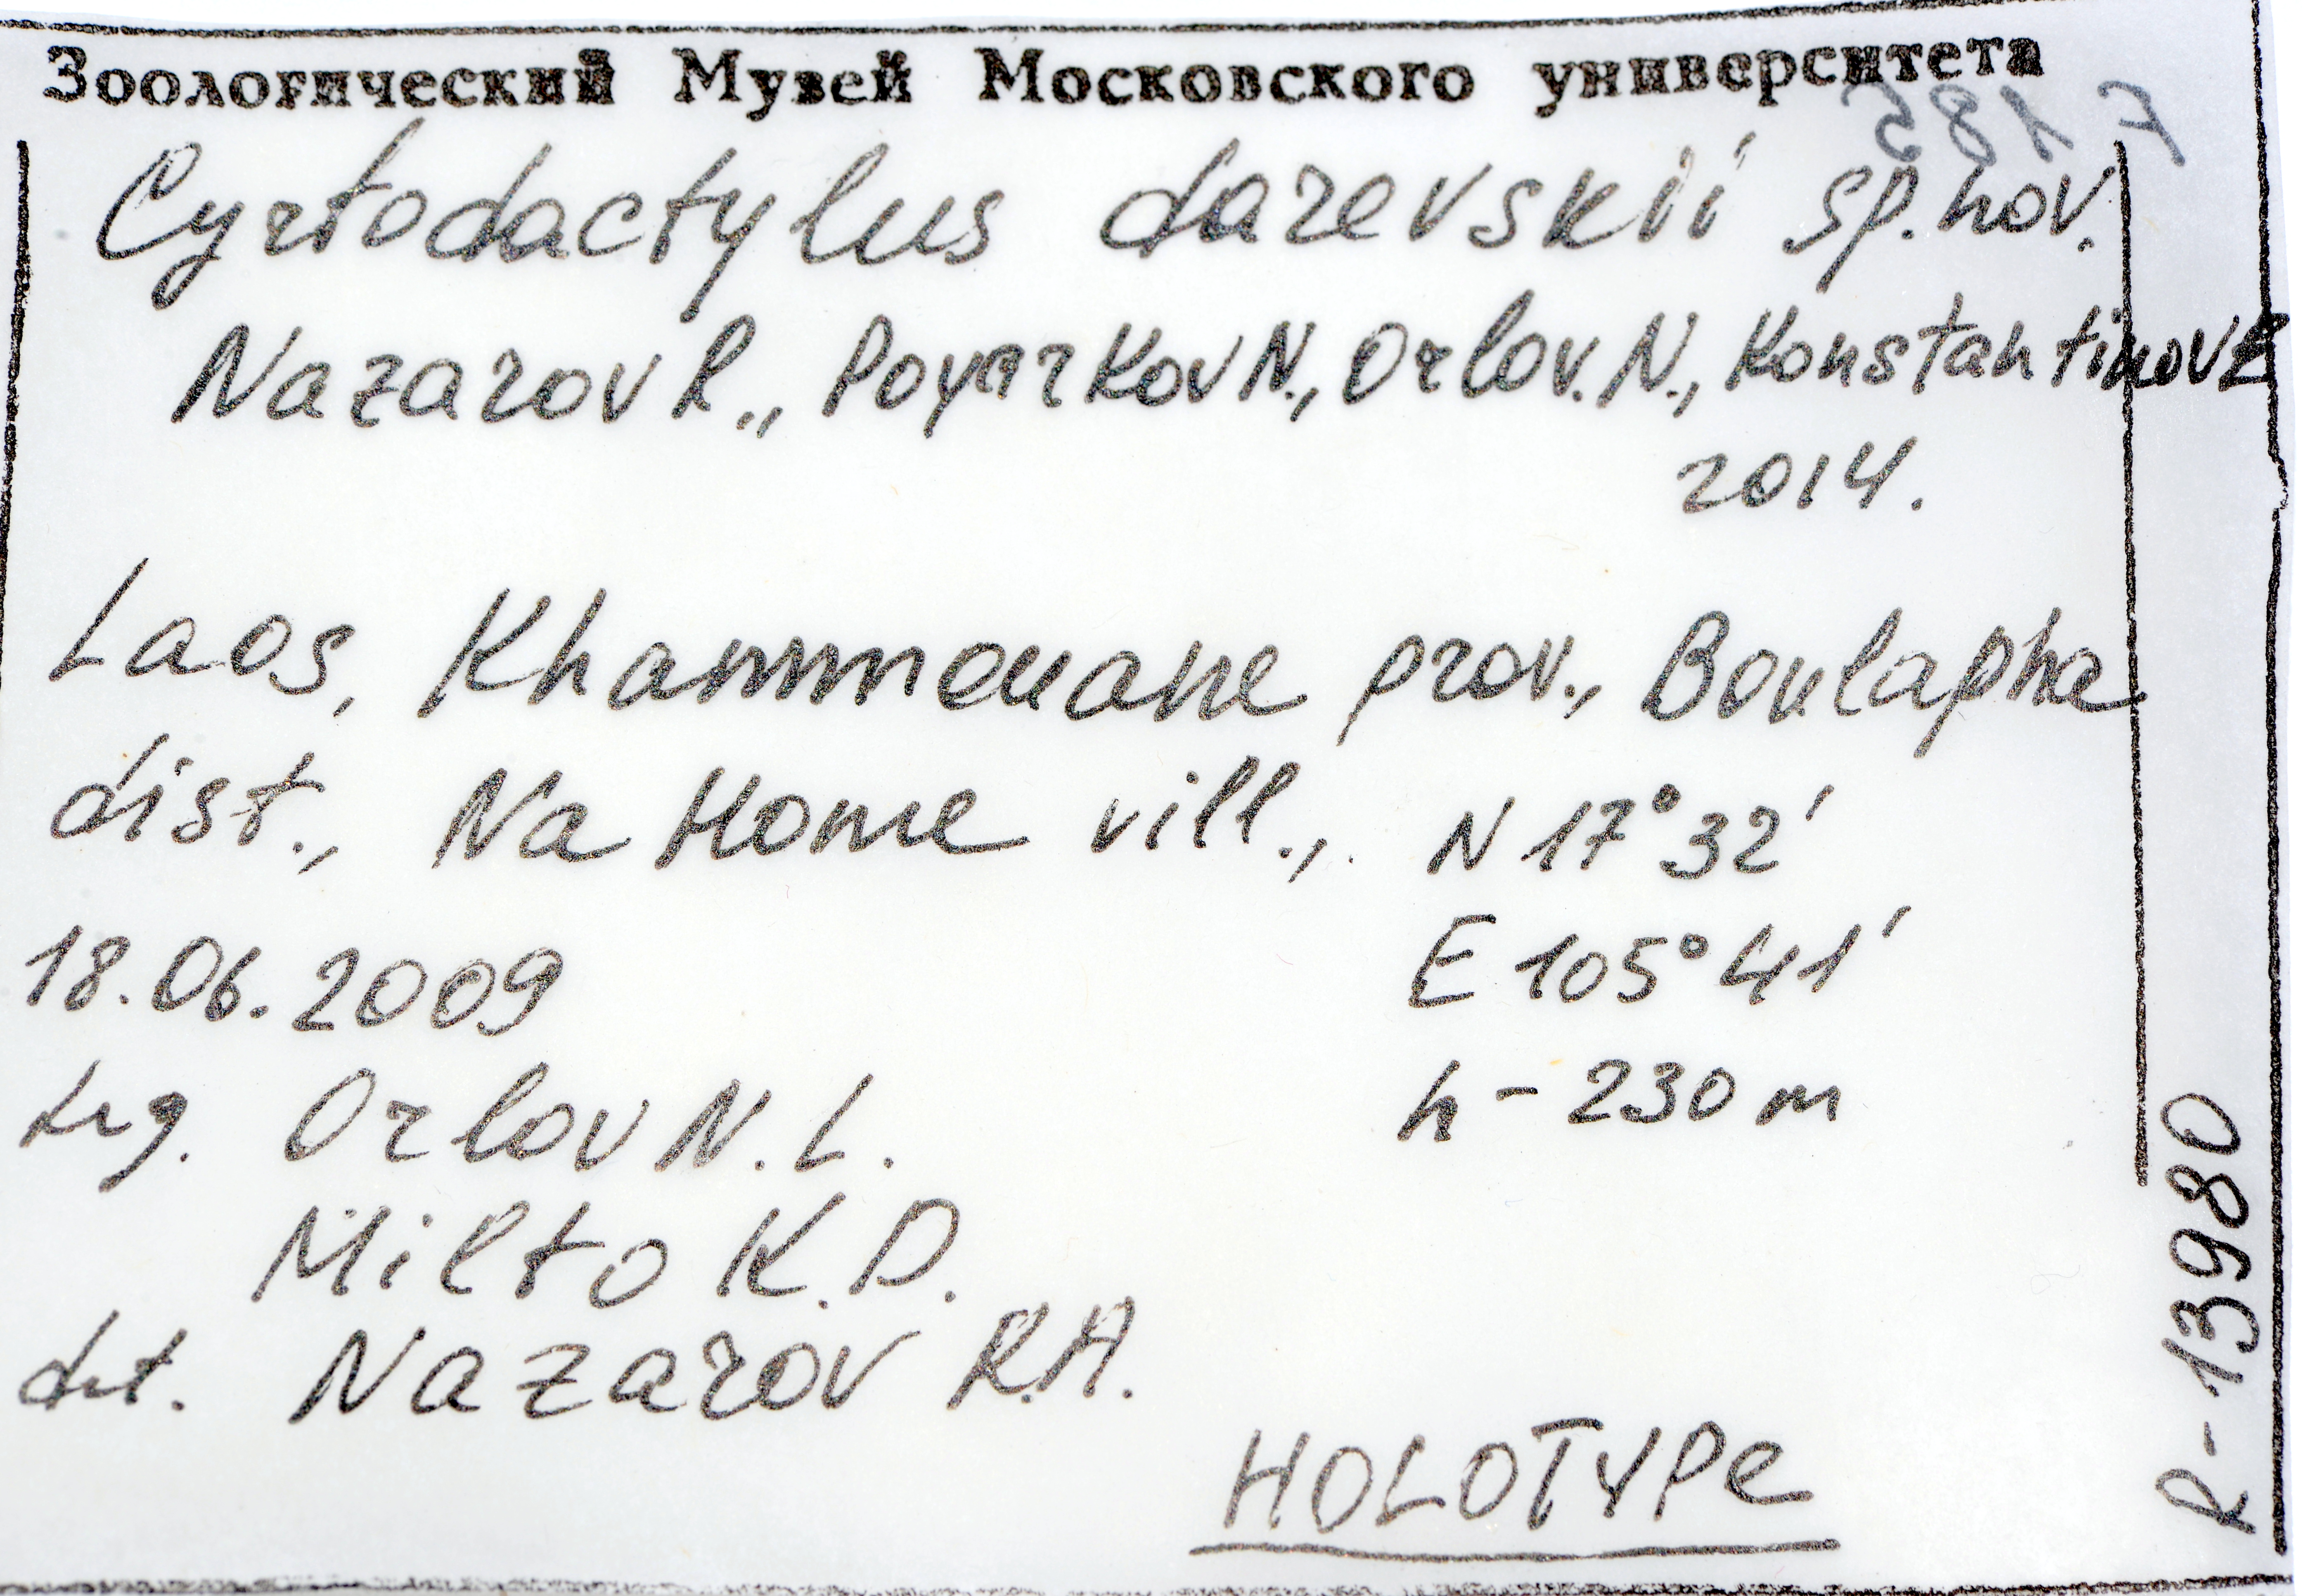 Зоологический Музей Московского университета
Cyrtodactylus darevskii sp. nov.
Nazarov R., Poyarkov N., Orlov. N., Konstantinov E
2014.
Laos, Khammouane prov., Boulapha
dist., Na Home vill., N 17° 32'
18.06.2009 E 105° 41'
leg. Orlov N. L. h - 230 m
Milto K. D.
det. Nazarov R.A.
HOLOTYPE
R-13980